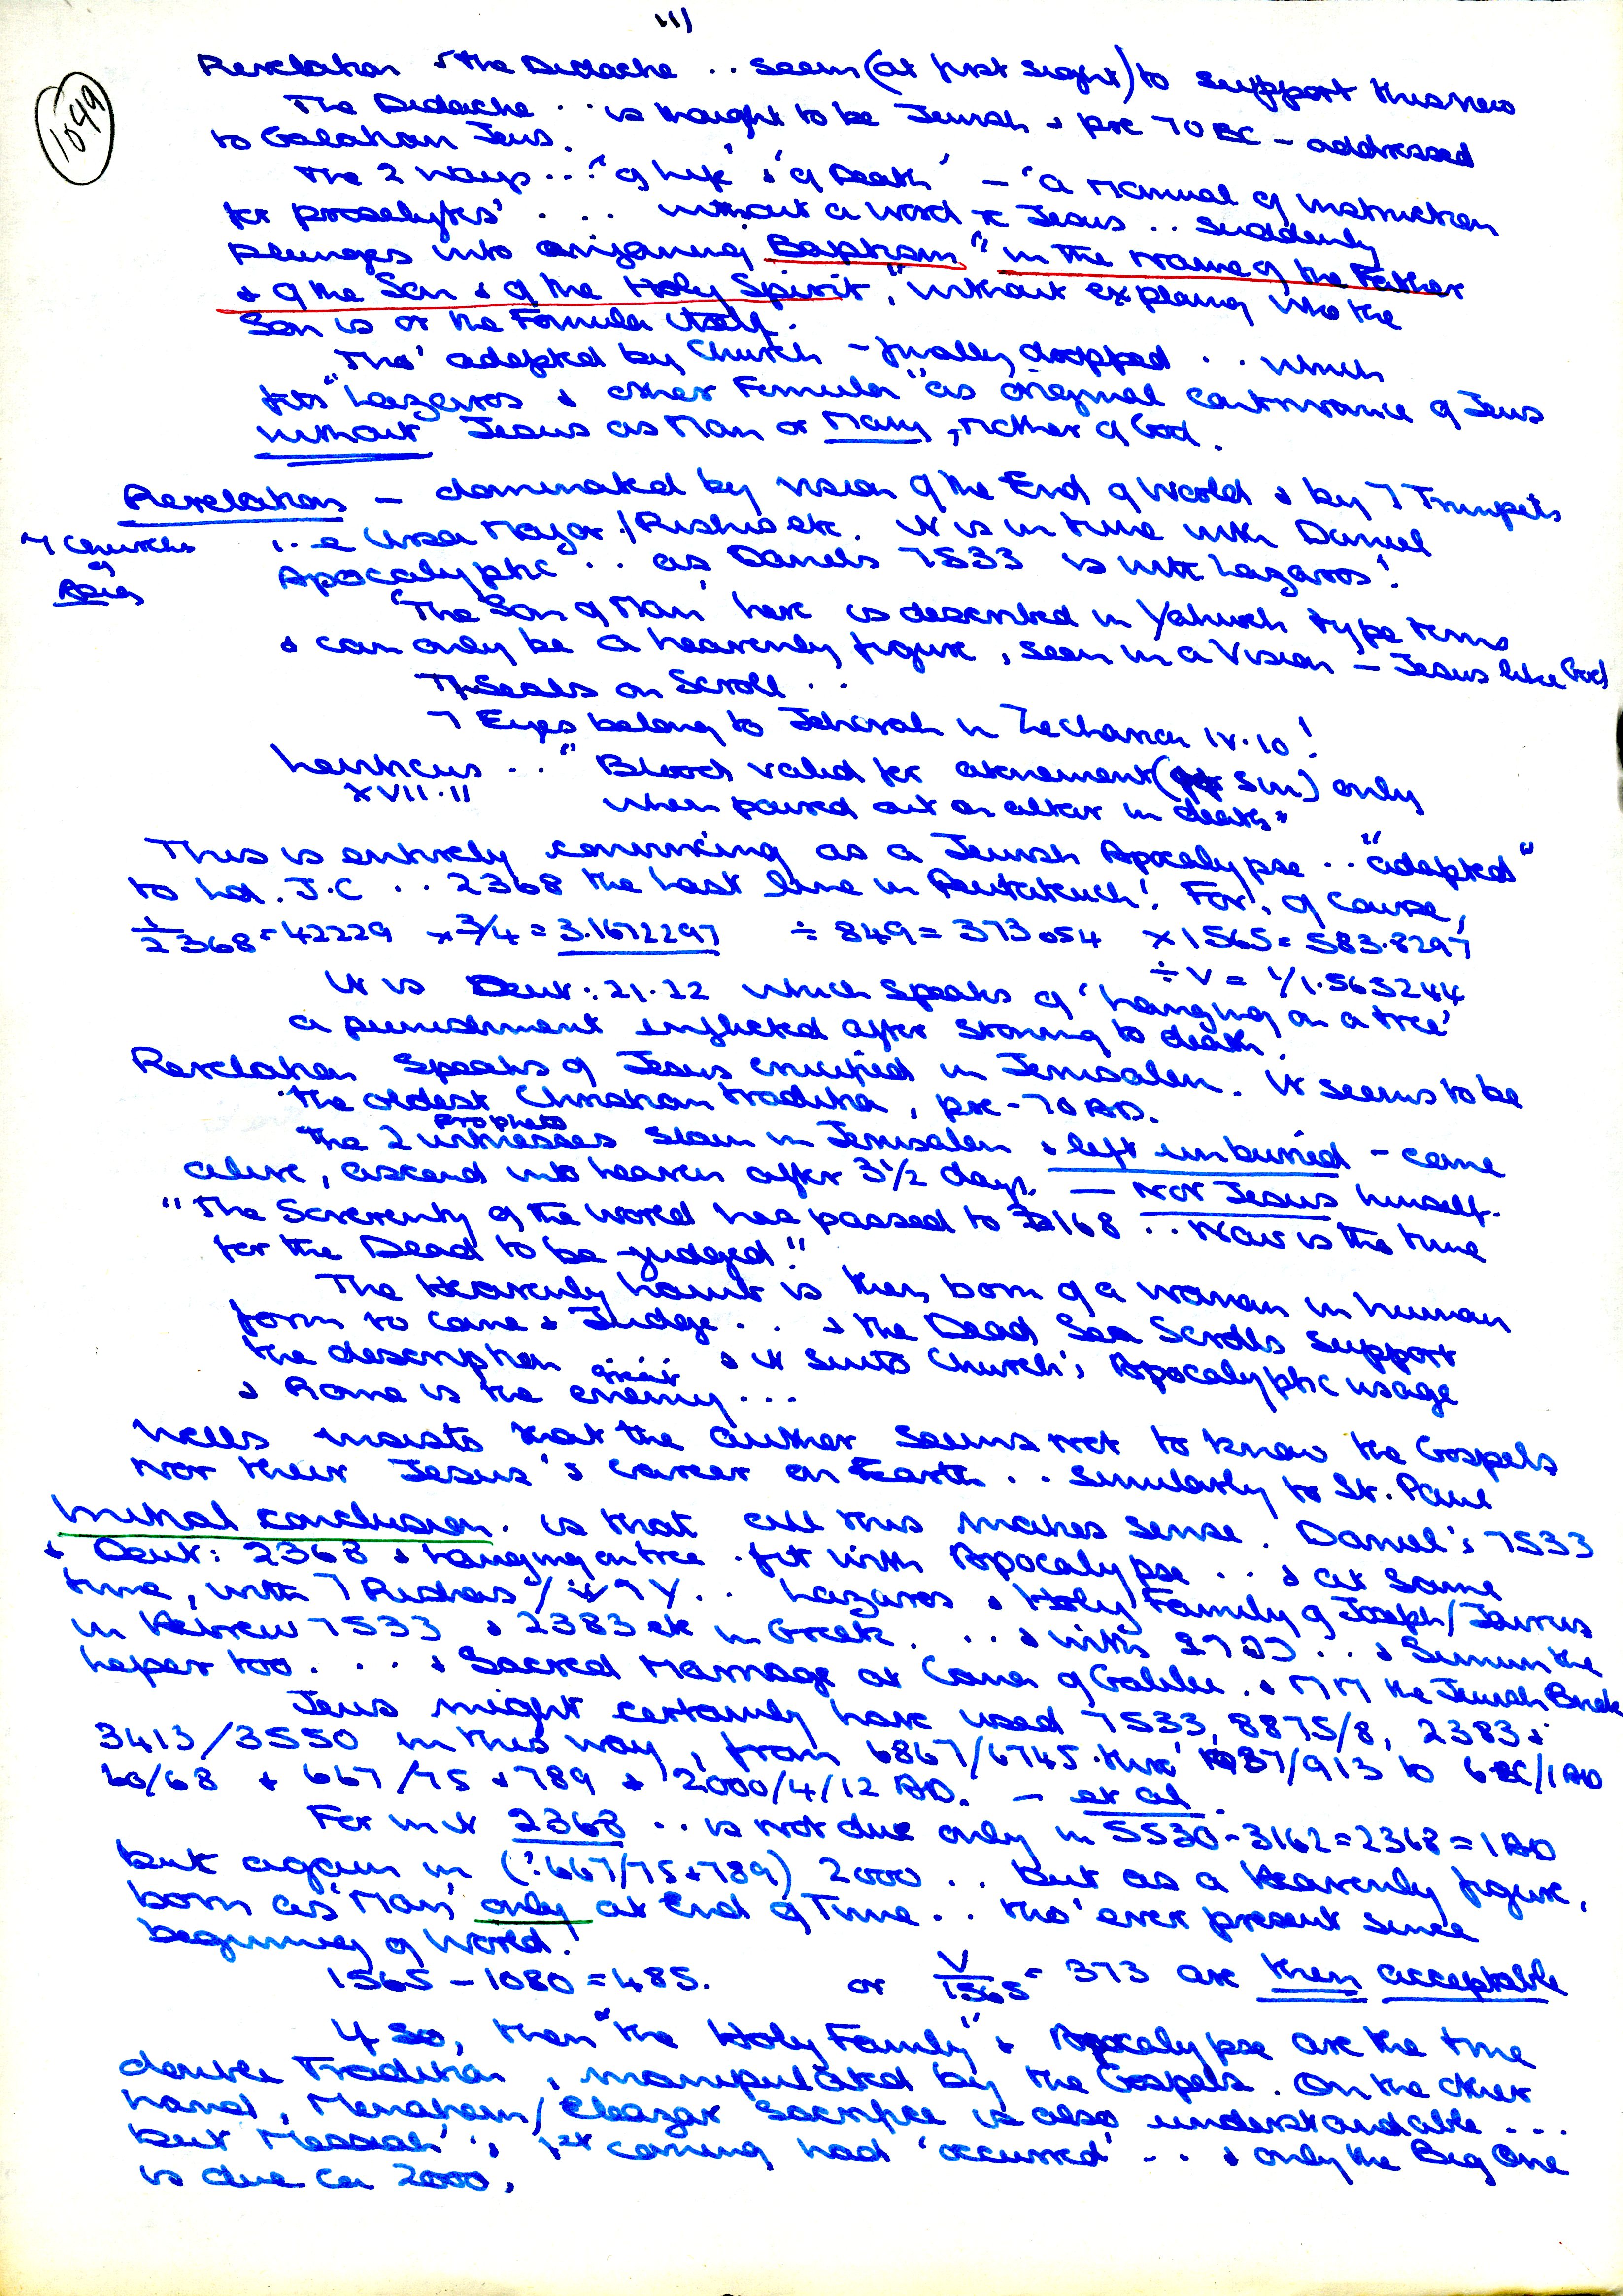 111)
1049
Revelation & the Didache .. seem (at first sight) to support this view
The Didache .. is thought to be Jewish & pre 70 BC – addressed
to Galatian Jews.
The 2 Ways .. 'of Life' & 'of Death' – 'a manual of instruction
for proselytes' . . . without a word re Jesus .. suddenly
plunges into organising Baptism "in the name of the Father
& of the Son & of the Holy Spirit", without explaing who the
Son is or the Formula itself.
Tho' adopted by Church – finally dropped . . which
fits "Lazarros & other Formula" as original contrivance of Jews
without Jesus as Man or Mary, mother of God.
Revelation – dominated by vision of the End of World & by 7 Trumpets
7 Churches
of
Asia
i.e Ursa Mayor / Rishis etc. It is in tune with Daniel
Apocalyptic .. as Daniels 7533 is with Lazarros!
'The Son of Man' here is described in Yahweh type terms
& can only be a heavenly figure, seen in a Vision – Jesus like God
7 Seals on Scroll ..
7 Eyes belong to Jehovah in Zecharia IV.10!
Leviticus .. "Blood valid for atonement (for sin) only
XVII.11 when poured out on altar in death"
This is entirely convincing as a Jewish Apocalypse .. "adapted"
to Ld. J.C .. 2368 the last line in Pentateuch! For, of course,
1/2368 = 42229 x 3/4 = 3.1672297 ÷ 849 = 373.054 x 1565 = 583.8297
÷ V = 1/1.565244
It is Deut: 21.22 which speaks of 'hanging on a tree'
a punishment inflicted after stoning to death!
Revelation speaks of Jesus crucified in Jerusalem. It seems to be
the oldest Christian tradition, pre-70 AD.
prophets
The 2 witnesses slain in Jerusalem & left unburied – come
alive, ascend into heaven after 3½ days. — Not Jesus himself.
"The Sovereignty of the World has passed to 3168 .. Now is the time
for the Dead to be judged"
The Heavenly Lamb is then born of a woman in human
form to come & Judge . . & the Dead Sea Scrolls support
the description & it suits Church's Apocalyptic usage
great
& Rome is the enemy ...
Wells insists that the author seems not to know the Gospels
nor their Jesus's career on Earth .. similarly to St. Paul
Initial conclusion is that all this makes sense. Daniel's 7533
& Deut: 2368 & hanging on tree fit with Apocalypse .. & at same
time, with 7 Rishis Lazaros & Holy Family of Joseph/Jesus
in Hebrew 7533 & 2383 etc in Greek. .. & with .. & Simun the
helper too . . . & Sacred Marriage at Cana of Galilee . & MM the Jewish Bride
Jews might certainly have used 7533, 8875/8, 2383 &
3413/3550 in this way, from 6867/6745 thro' 1087/913 to 6 BC/1 AD
60/68 & 667/75 & 789 & 2000/4/12 AD. – et al.
For in it 2368 .. is not due only in 5530-3162 = 2368 = 1 AD
but again in (?667/75 & 789) 2000 .. but as a Heavenly figure,
born as 'Man' only at End of Time .. tho' ever present since
beginning of World!
1565 – 1080 = 485. or V/1565 = 373 are then acceptable
If so, then "the Holy Family" & Apocalypse are the true
double Tradition, manipulated by the Gospels. On the other
hand, Menahem/Eleazar Sacrifice is also understandable ...
but Messiah's 1st coming had 'occurred' .. & only the Big One
is due ca 2000,